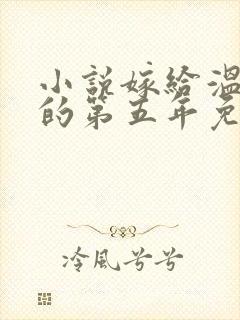 小說嫁給溫
的第五年免
冷風兮兮